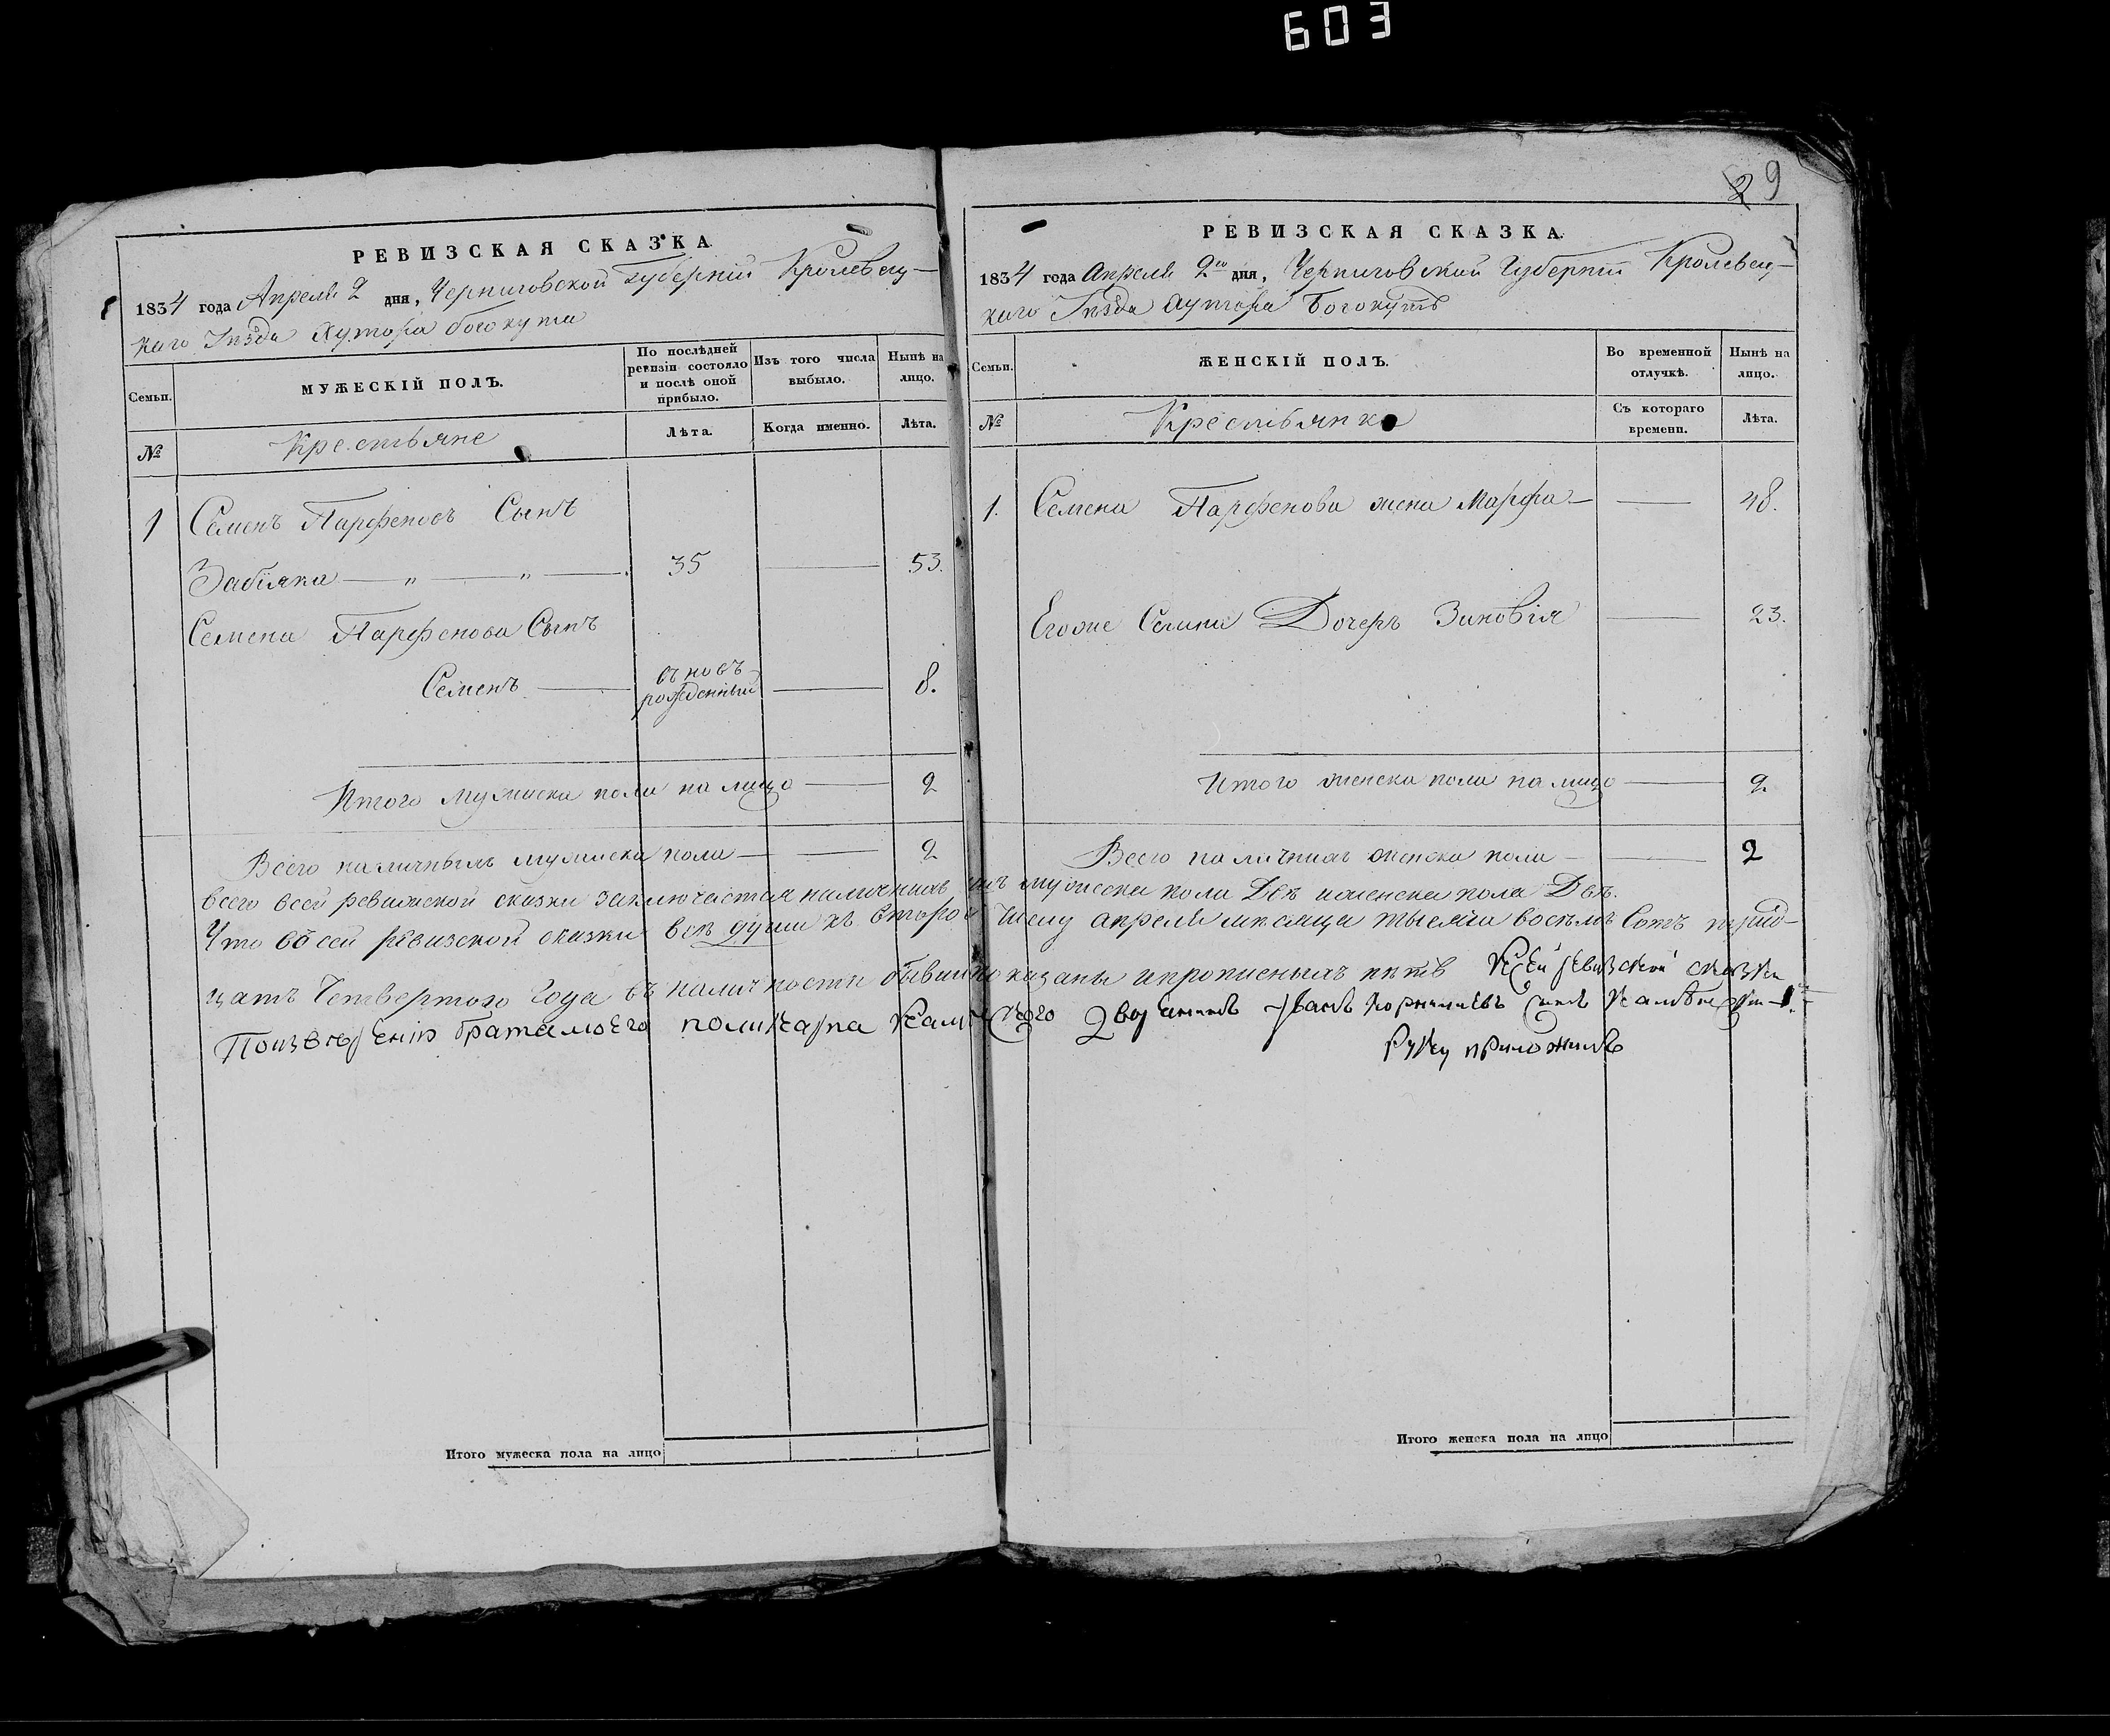 603
29
РЕВИЗСКАЯ СКАЗКА.
1834 года Апреля 2 дня, Черниговской Губерніи Кролевец-
каго Уѣзда Хутора богокута
Семьи.
МУЖЕСКІЙ ПОЛЪ.
По послѣдней ревизіи состояло и послѣ оной прибыло.
Изъ того числа выбыло.
Нынѣ на лицо.
№
Крестьяне
Лѣта.
Когда именно.
Лѣта.
1 Семенъ Парфеновъ Сынъ
Забіяка — „ — „ — 35 — 53.
Семена Парфенова Сынъ
Семенъ — въновъ рожденный — 8.
Итого мужеска пола на лицо — 2
Всего наличныхъ мужеска пола — 2
РЕВИЗСКАЯ СКАЗКА.
1834 года Апреля 2го дня, Черниговской Губерніи Кролевец-
каго Уѣзда Хутора Богокутъ
Семьи.
ЖЕНСКІЙ ПОЛЪ.
Во временной отлучкѣ.
Нынѣ на лицо.
№
Крестьянки
Съ котораго времени.
Лѣта.
1. Семена Парфенова жена Марфа — 48.
Егоже Семена Дочеръ Зиновія — 23.
Итого женска пола на лицо — 2.
Всего наличныхъ женска пола — 2
всего всей ревизской сказки заключается наличныхъ мужеска пола Двѣ иженска пола Двѣ.
Что всей ревизской сказки всѣ души къ второму Числу апреля мѣсяца тысяча восемъ Сотъ трид-
цатъ Четвертого Года въ наличности бывши показаны ипрописныхъ нѣтъ Ксей ревизской сказки
Поизволенію братамоего поликарпа Дворянинъ Иванъ Сынъ
руку приложилъ
Итого мужеска пола на лицо
Итого женска пола на лицо